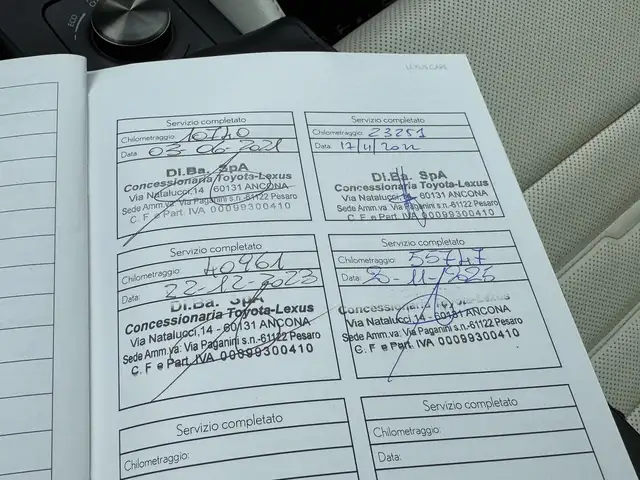 ECO
LEXUS CARE
Servizio completato
Chilometraggio: 10740
Data: 03-06-2021
DI.Ba. SpA
Concessionaria Toyota-Lexus
Via Natalucci,14 - 60131 ANCONA
Sede Amm.va: Via Paganini s.n.-61122 Pesaro
C. F. e Part. IVA 00099300410
Servizio completato
Chilometraggio: 23251
Data: 17/11/2022
DI.Ba. SpA
Concessionaria Toyota-Lexus
Via Natalucci,14 - 60131 ANCONA
Sede Amm.va: Via Paganini s.n.-61122 Pesaro
C. F. e Part. IVA 00099300410
Servizio completato
Chilometraggio: 40961
Data: 22-12-2023
DI.Ba. SpA
Concessionaria Toyota-Lexus
Via Natalucci,14 - 60131 ANCONA
Sede Amm.va: Via Paganini s.n.-61122 Pesaro
C. F. e Part. IVA 00099300410
Servizio completato
Chilometraggio: 55747
Data: -11-2025
Concessionaria Toyota-Lexus
Via Natalucci,14 - 60131 ANCONA
Sede Amm.va: Via Paganini s.n.-61122 Pesaro
C. F. e Part. IVA 00099300410
Servizio completato
Chilometraggio:
Servizio completato
Chilometraggio:
Data: